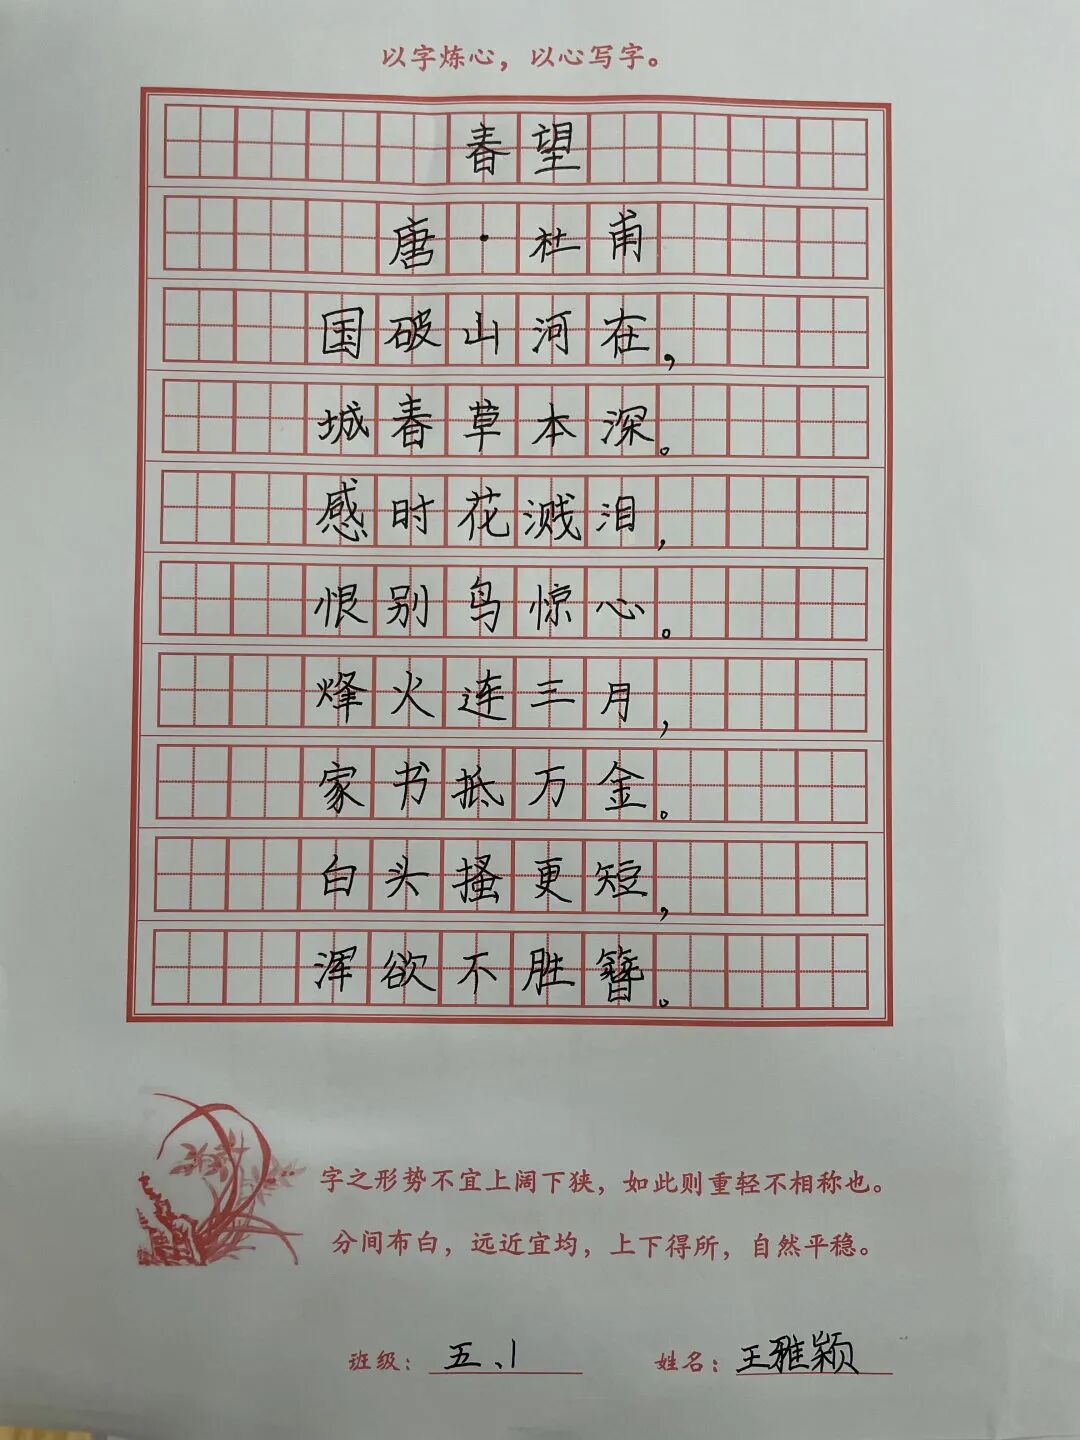 以字炼心，以心写字。
春望
唐·杜甫
国破山河在，
城春草本深。
感时花溅泪，
恨别鸟惊心。
烽火连三月，
家书抵万金。
白头搔更短，
浑欲不胜簪。
字之形势不宜上阔下狭，如此则重轻不相称也。
分间布白，远近宜均，上下得所，自然平稳。
班级：五、1 姓名：王雅颖